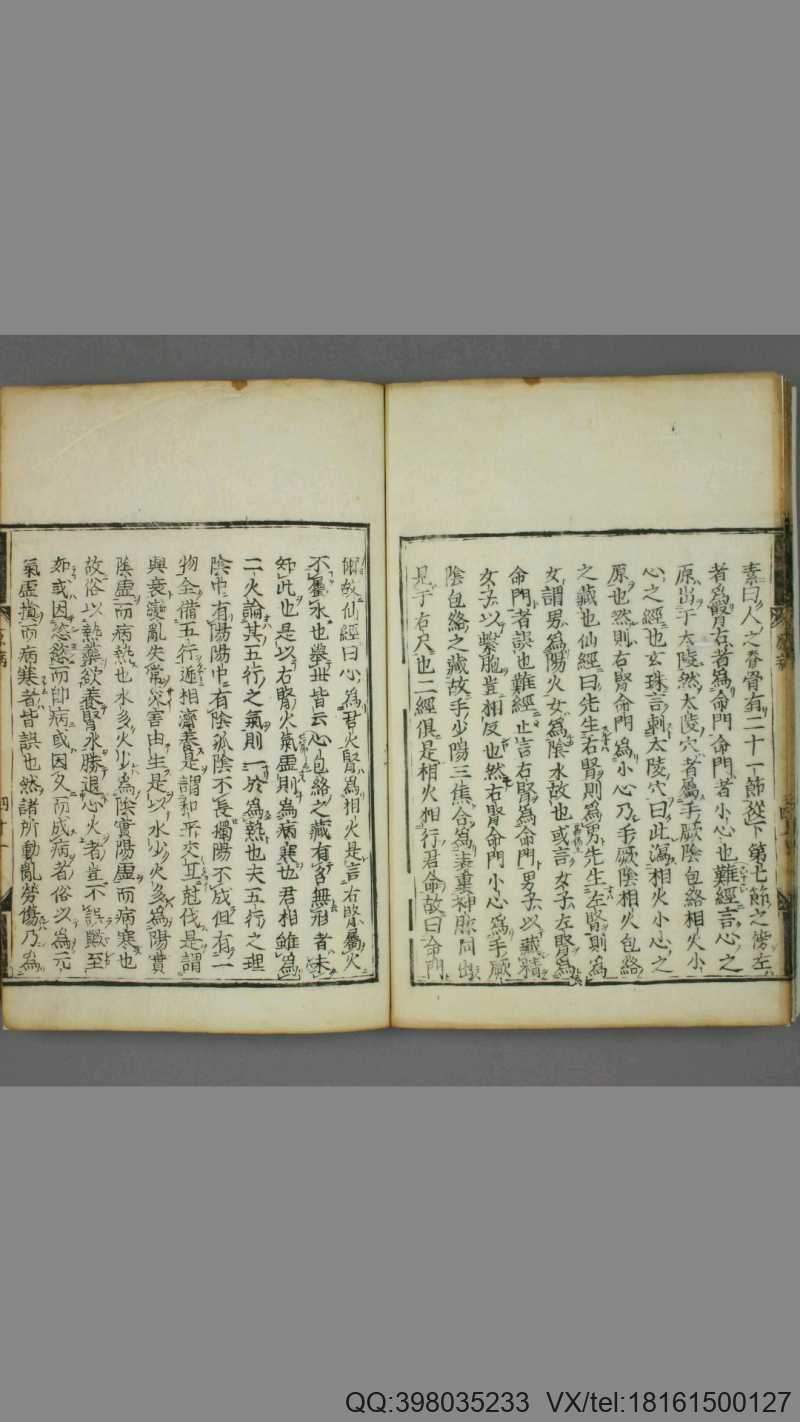 素曰人之脊骨有二十一節從下第七節之傍左
者爲腎右者爲命門命門者小心也難經言心之
原出于太陵然太陵穴者屬手厥陰包絡相火小
心之經也玄珠言刺太陵穴曰此瀉相火小心之
原也然則右腎命門爲小心乃手厥陰相火包絡
之藏也仙經曰先生右腎則爲男先生左腎則爲
女謂男爲陽火女爲陰水故也或言女子左腎爲
命門者誤也難經止言右腎爲命門男子以藏精
女子以繫胞豈相反也然右腎命門小心爲手厥
陰包絡之藏故手少陽三焦合爲表裏神脉同出
見于右尺也二經俱是相火相行君命故曰命門
爾故仙經曰心爲君火腎爲相火是言右腎屬火
不屬水也舉世皆云心包絡之藏有名無形者未
知此也是以右腎火氣虛則爲病寒也君相雖爲
二火論其五行之氣則一於爲熱也夫五行之理
陰中有陽陽中有陰孤陰不長獨陽不成但有一
物全備五行遞相濟養是謂和平交互尅伐是謂
興衰變亂失常災害由生是以水少火多爲陽實
陰虛而病熱也水多火少爲陰實陽虛而病寒也
故俗以熱藥欲養腎水勝退心火者豈不誤歟至
如或因恣慾而即病或因久而成病者俗以爲元
氣虛損而病寒者皆誤也然諸所動亂勞傷乃爲
QQ:398035233 VX/tel:18161500127